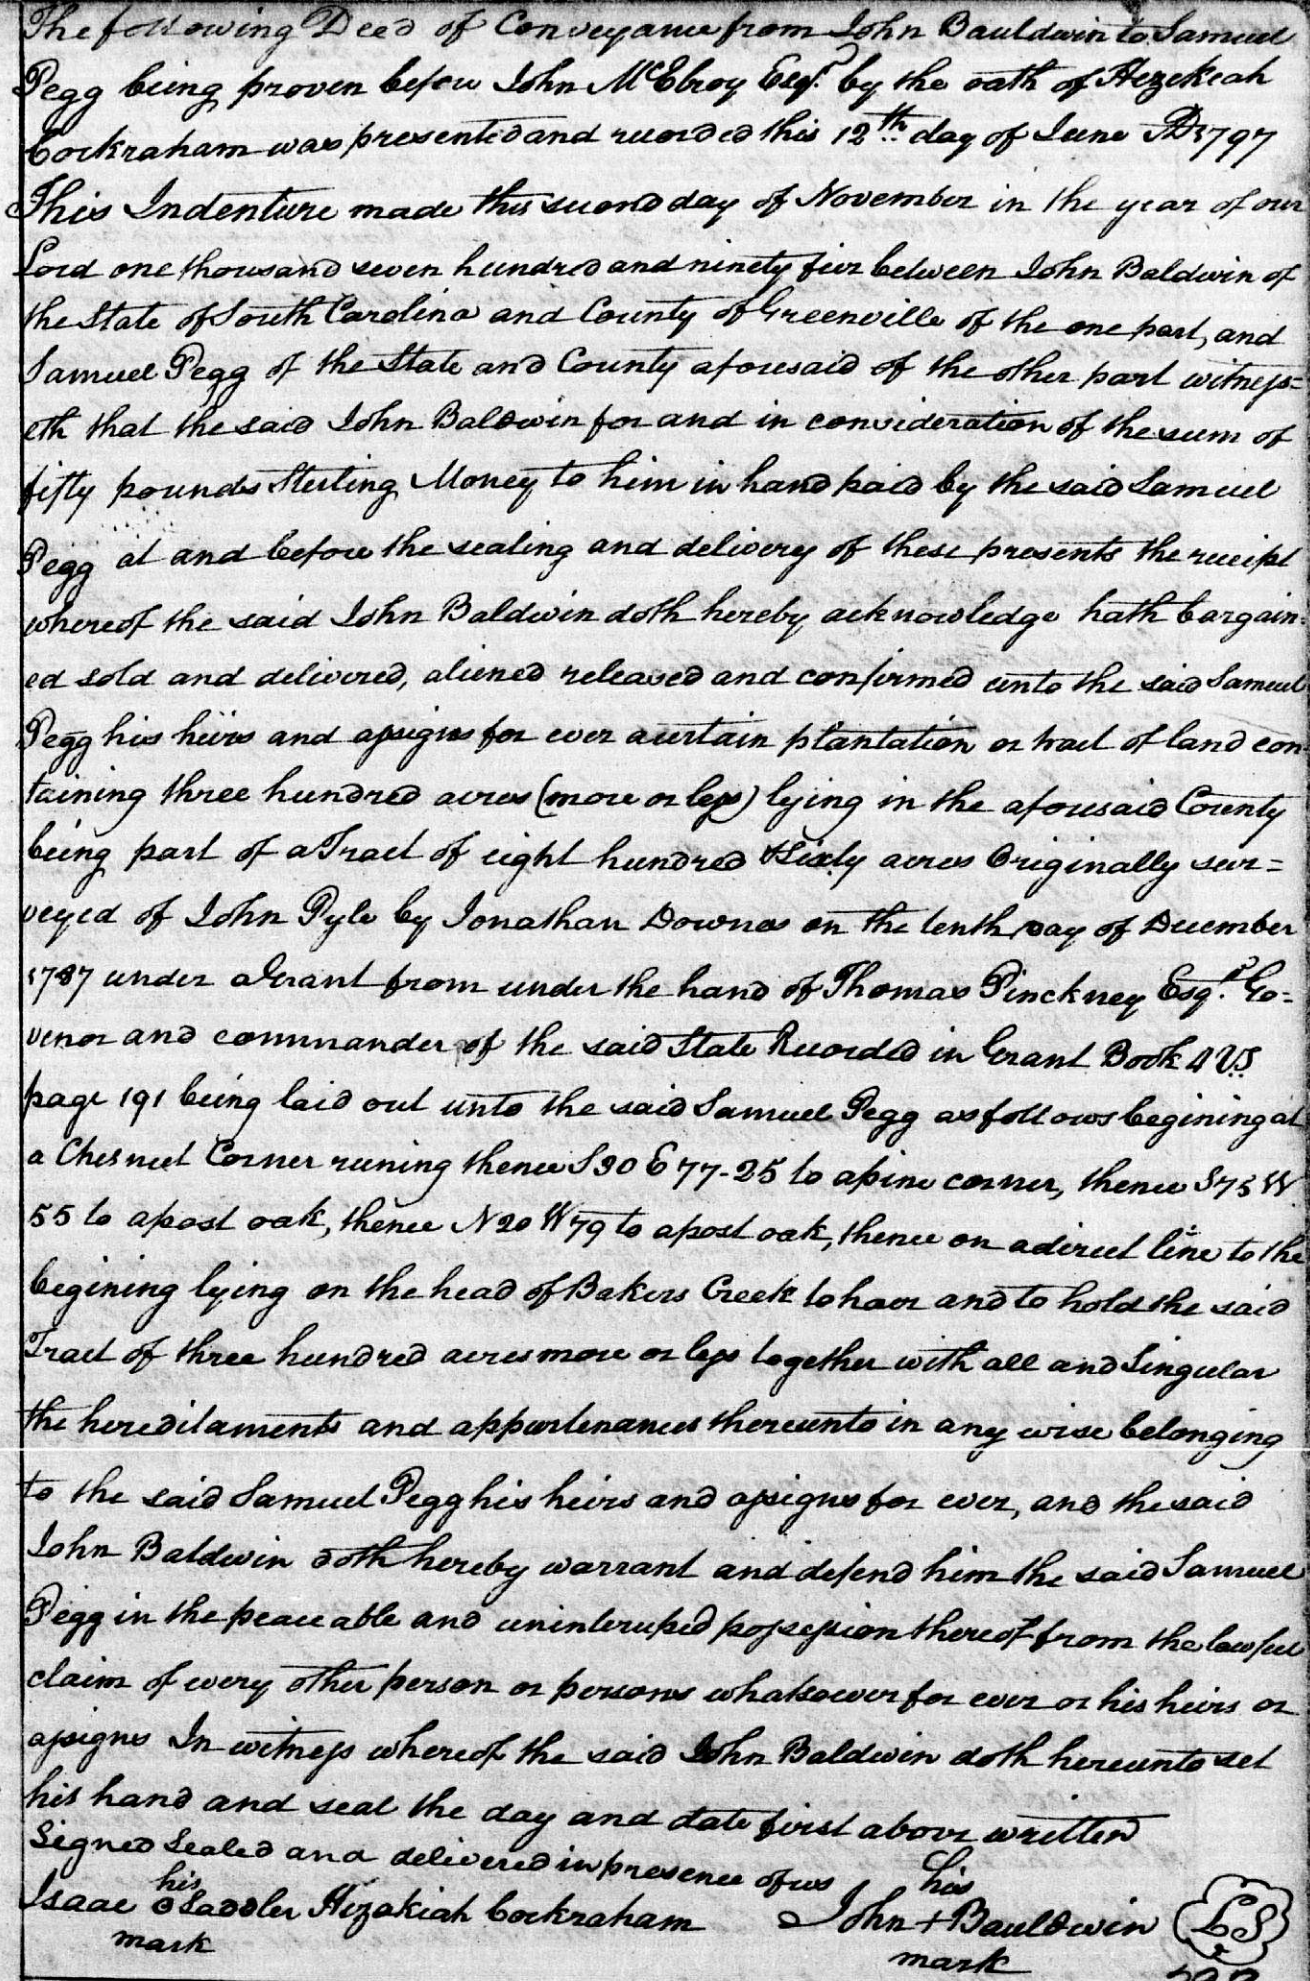 The following Deed of Conveyance from John Bauldwin to Samuel
Pegg being proven before John McElroy Esqr. by the oath of Hezekeah
Cockraham was presented and recorded this 12th day of June AD 1797
This Indenture made this second day of November in the year of our
Lord one thousand seven hundred and ninety five between John Baldwin of
the State of South Carolina and County of Greenville of the one part, and
Samuel Pegg of the State and County aforesaid of the other part witness=
eth that the said John Baldwin for and in consideration of the sum of
fifty pounds Sterling Money to him in hand paid by the said Samuel
Pegg at and before the sealing and delivery of these presents the receipt
whereof the said John Baldwin doth hereby acknowledge hath bargain=
ed sold and delivered, aliened released and confirmed unto the said Samuel
Pegg his heirs and assigns for ever a certain plantation or tract of land con=
taining three hundred acres (more or less) lying in the aforesaid County
being part of a Tract of eight hundred & Sixty acres Originally sur=
veyed of John Pyle by Jonathan Downas on the tenth day of December
1787 under a Grant from under the hand of Thomas Pinckney Esqr. Go=
venor and commander of the said State Recorded in Grant Book 4 VS
page 191 being laid out unto the said Samuel Pegg as follows begining at
a Chesnut Corner runing thence S 20 E 77-25 to a pine corner, thence S 75 W
55 to a post oak, thence N 20 W 79 to a post oak, thence on a direct line to the
begining lying on the head of Bakers Creek to have and to hold the said
Tract of three hundred acres more or less together with all and Singular
the hereditaments and appurtenances thereunto in any wise belonging
to the said Samuel Pegg his heirs and assigns for ever, and the said
John Baldwin doth hereby warrant and defend him the said Samuel
Pegg in the peaceable and uninteruped possession thereof from the lawful
claim of every other person or persons whatsoever for ever or his heirs or
assigns In witness whereof the said John Baldwin doth hereunto set
his hand and seal the day and date first above written
Signed Sealed and delivered in presence of us his
his
Isaac O Saddler Hezakiah Cockraham John + Bauldwin LS
mark mark